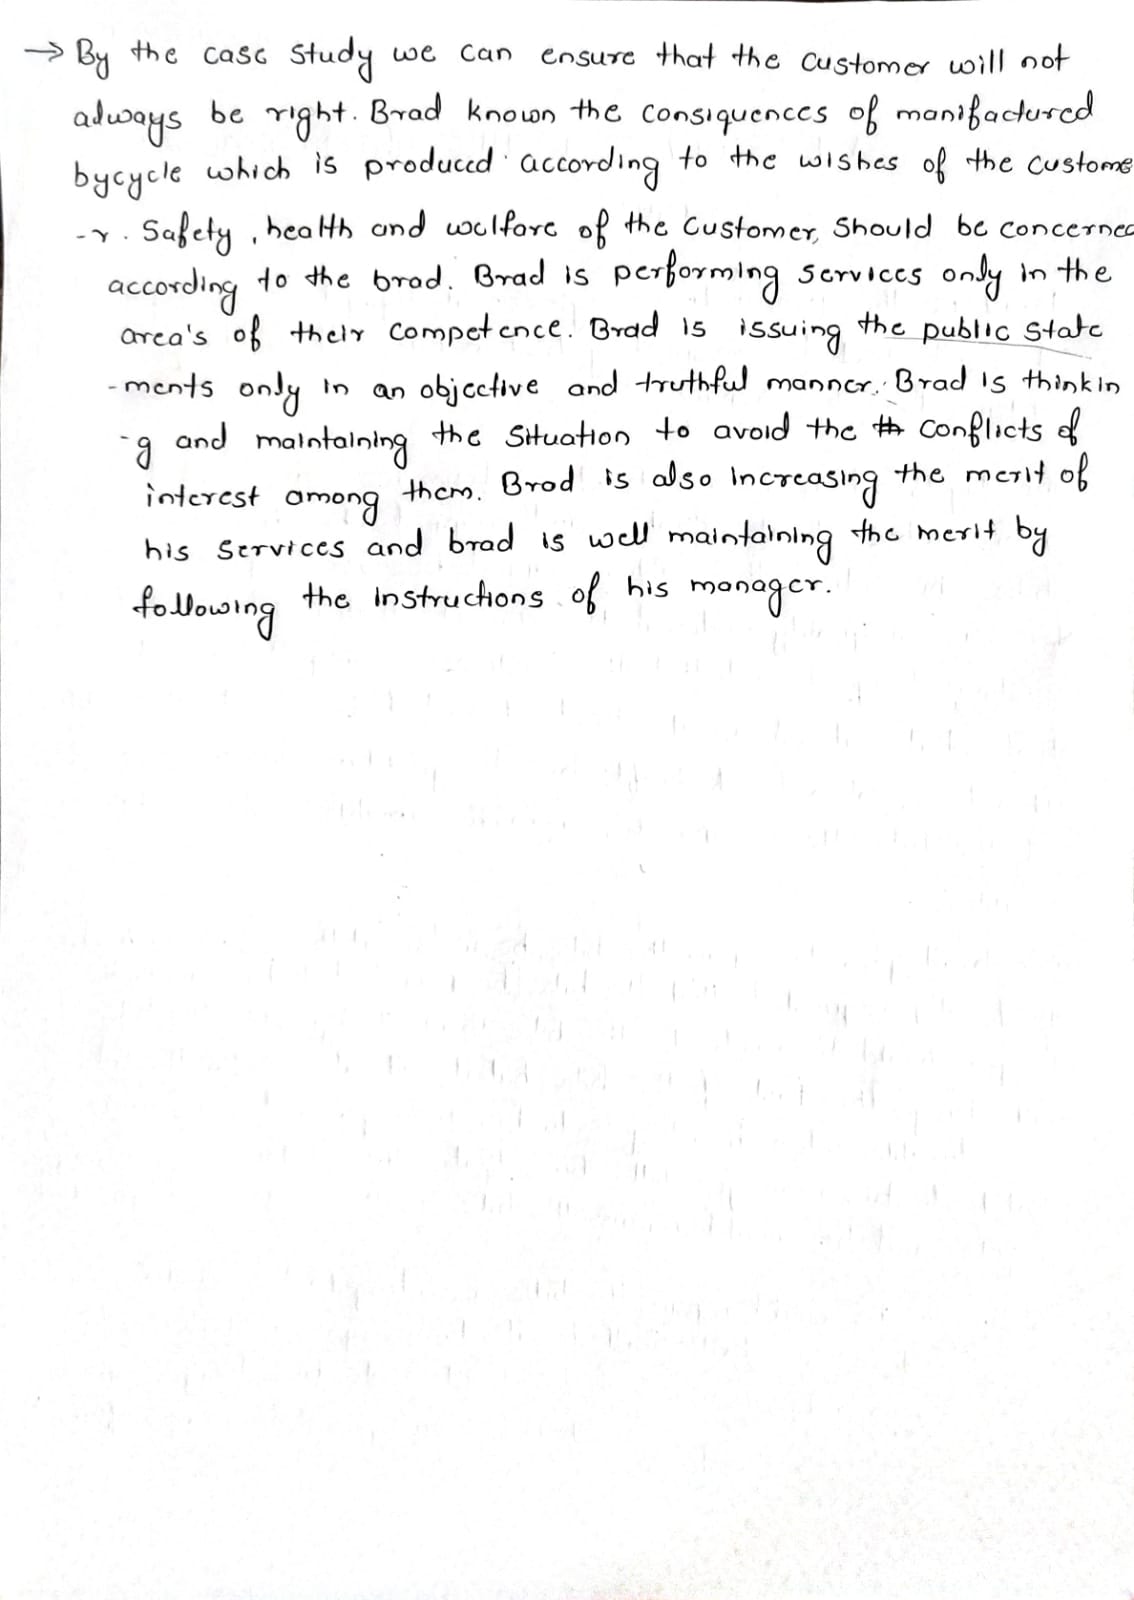 → By the case study we can ensure that the customer will not
always be right. Brad known the consiquences of manifactured
bycycle which is produced according to the wishes of the custome
-r. Safety, health and welfare of the customer, should be concerned
according to the brad. Brad is performing services only in the
area's of their competence. Brad is issuing the public state
-ments only in an objective and truthful manner. Brad is thinkin
-g and maintaining the situation to avoid the th conflicts of
interest among them. Brad is also increasing the merit of
his services and brad is well maintaining the merit by
following the instructions of his manager.